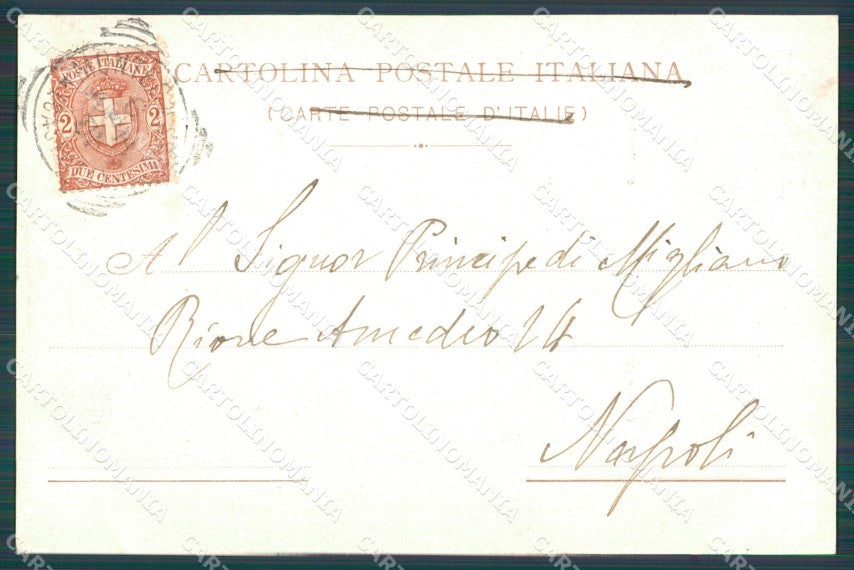 POSTE ITALIANE
2 2
DUE CENTESIMI
CARTOLINA POSTALE ITALIANA
(CARTE POSTALE D'ITALIE)
Al Signor Principe di Migliano
Rione Amedeo 14
Napoli
CARTOLINOMANIA